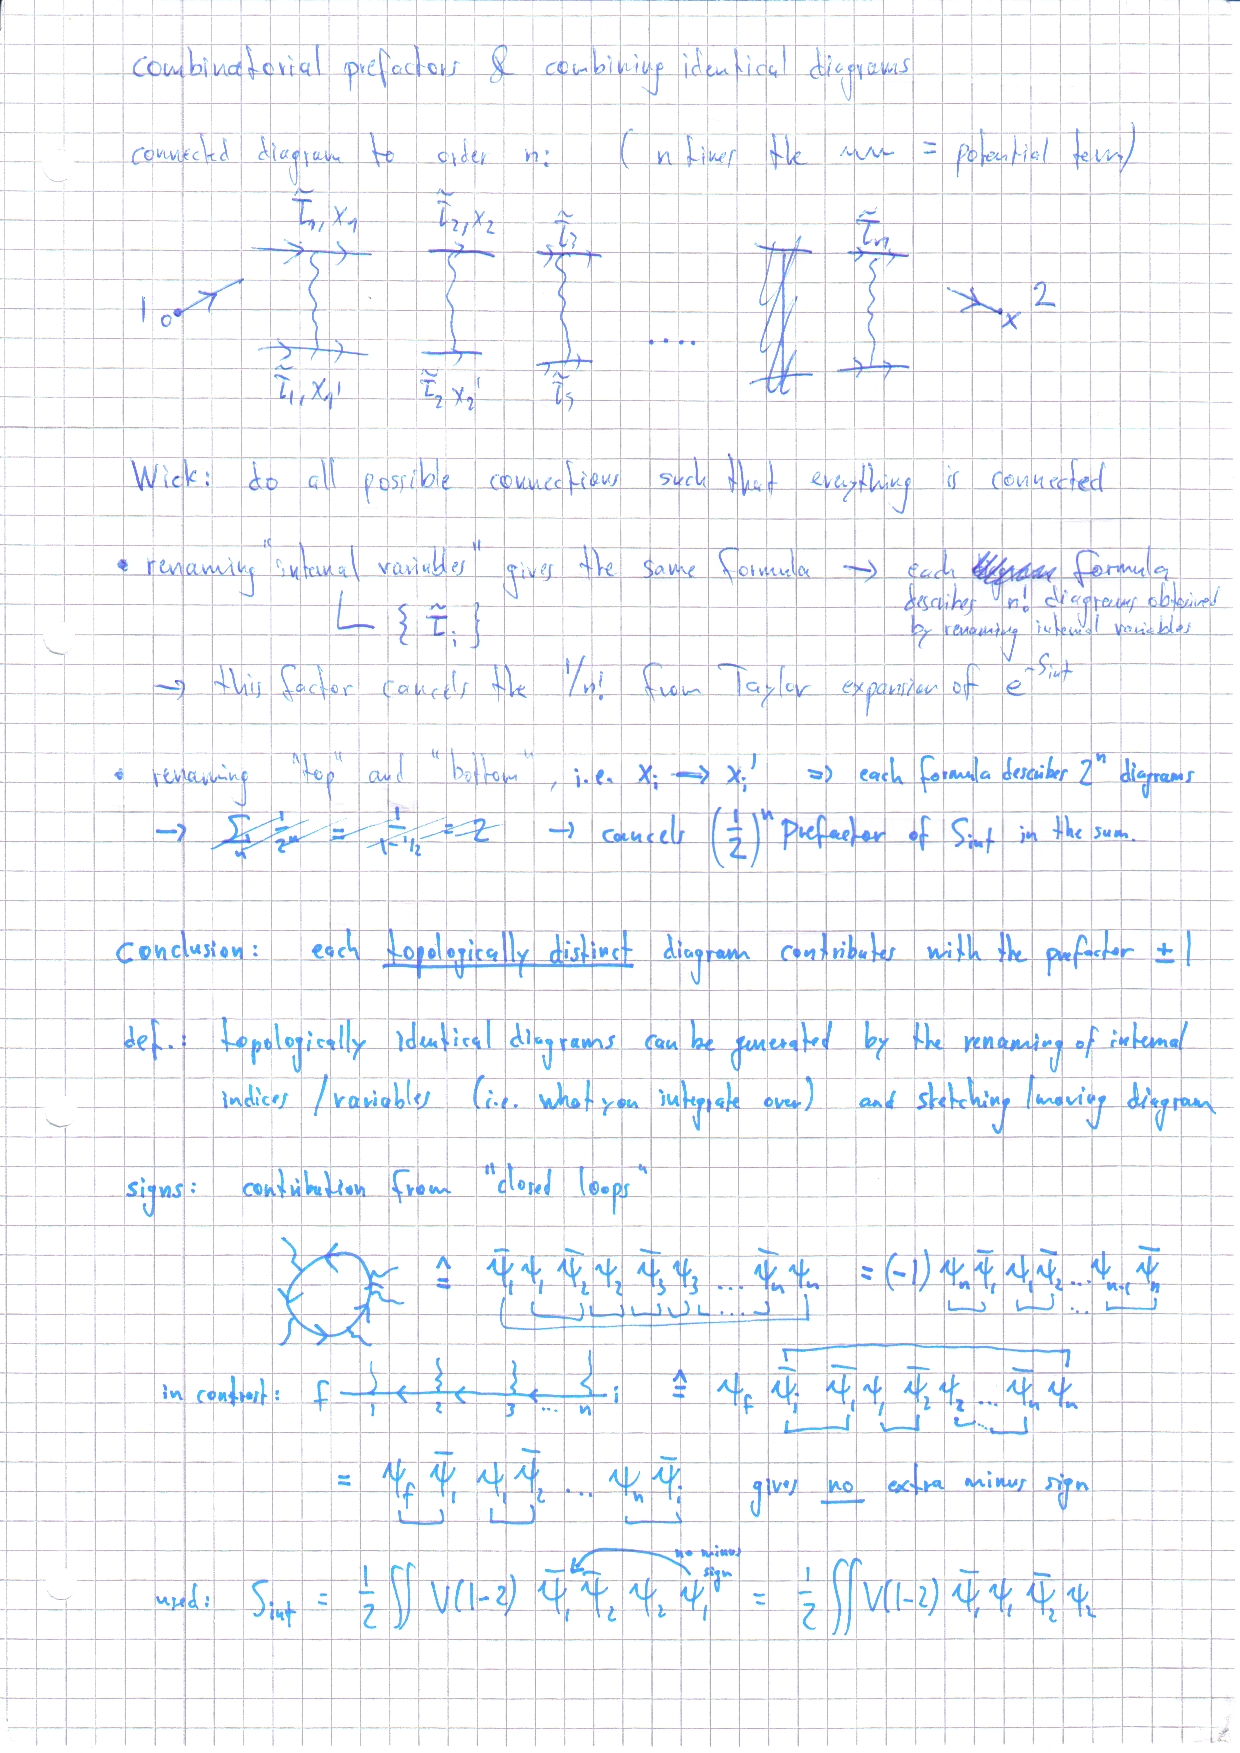 combinatorial prefactors & combining identical diagrams
connected diagram to order n: ( n times the ~~~ = potential term)
τ̃₁, x₁ τ̃₂, x₂ τ̃₃ τ̃ₙ
1 2
τ̃₁, x₁' τ̃₂ x₂' τ̃₃ ....
Wick: do all possible connections such that everything is connected
• renaming "internal variables" gives the same formula → each formula
{ τ̃ᵢ } describes n! diagrams obtained
by renaming internal variables
→ this factor cancels the 1/n! from Taylor expansion of e^{-S_int}
• renaming "top" and "bottom", i.e. xᵢ → xᵢ' ⇒ each formula describes 2ⁿ diagrams
→ Σₙ 1/2ⁿ = 1/(1-1/2) = 2 → cancels (1/2)ⁿ prefactor of S_int in the sum.
Conclusion: each topologically distinct diagram contributes with the prefactor ± 1
def.: topologically identical diagrams can be generated by the renaming of internal
indices / variables (i.e. what you integrate over) and sketching / moving diagram
signs: contribution from "closed loops"
≙ ψ̄₁ ψ₁ ψ̄₂ ψ₂ ψ̄₃ ψ₃ ... ψ̄ₙ ψₙ = (-1) ψₙ ψ̄₁ ψ₁ ψ̄₂ ... ψₙ₋₁ ψ̄ₙ
in contrast: f 1 2 3 ... n i ≙ ψ_f ψ̄ᵢ ψ̄₁ ψ₁ ψ̄₂ ψ₂ ... ψ̄ₙ ψₙ
= ψ_f ψ̄₁ ψ₁ ψ̄₂ ... ψₙ ψ̄ᵢ gives no extra minus sign
no minus sign
used: S_int = 1/2 ∬ V(1-2) ψ̄₁ ψ̄₂ ψ₂ ψ₁ = 1/2 ∬ V(1-2) ψ̄₁ ψ₁ ψ̄₂ ψ₂